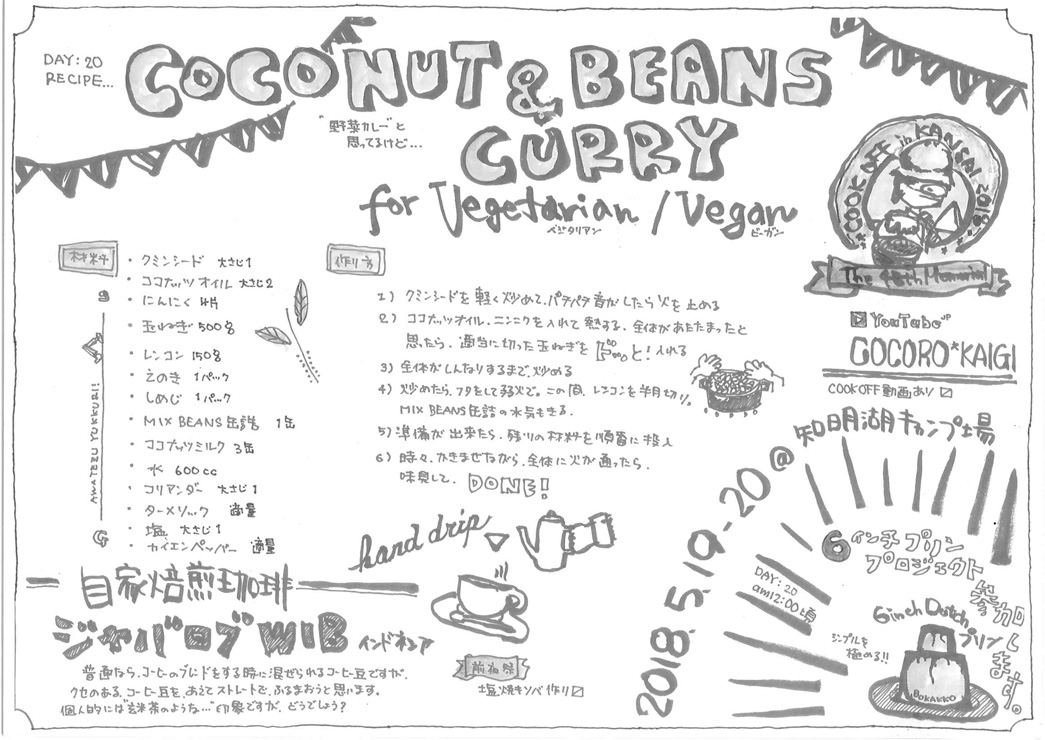 DAY: 20
RECIPE...
COCONUT & BEANS
CURRY
"野菜カレー"と
思ってるけど...
for Vegetarian / Vegan
ベジタリアン
ビーガン
COOK OFF in KANSAI 2018
The 48th Memorial
材料
・クミンシード 大さじ1
・ココナッツオイル 大さじ2
・にんにく 4片
・玉ねぎ 500g
・レンコン 150g
・えのき 1パック
・しめじ 1パック
・MIX BEANS缶詰 1缶
・ココナッツミルク 3缶
・水 600cc
・コリアンダー 大さじ1
・ターメリック 適量
・塩 大さじ1
・カイエンペッパー 適量
AWATEZU YUKKURI!
作り方
1) クミンシードを軽く炒めて、パチパチ音がしたら火を止める
2) ココナッツオイル、ニンニクを入れて熱する、全体があたたまったと
思ったら、適当に切った玉ねぎをドーッと!入れる
3) 全体がしんなりするまで炒める
4) 炒めたら、フタをして弱火で。この間、レンコンを半月切り。
MIX BEANS缶詰の水気もきる。
5) 準備が出来たら、残りの材料を順番に投入
6) 時々、かきまぜながら、全体に火が通ったら、
味見して、DONE!
YouTube
COCORO*KAIGI
COOK OFF 動画あり
2018.5.19-20@
知明湖キャンプ場
hand drip
自家焙煎珈琲
ジャバロブ WIB インドネシア
普通なら、コーヒーのブレンドをする時に混ぜられるコーヒー豆ですが、
クセのある、コーヒー豆を、あえてストレートで、ふるまおうと思います。
個人的には"玄米茶のような..."印象ですが、どうでしょう?
前夜祭
塩焼きソバ作り
6インチプリン
プロジェクト
参加します。
DAY: 20
am12:00頃
6inch Dutch
プリン
シンプルを
極める!!
BOKAKKO